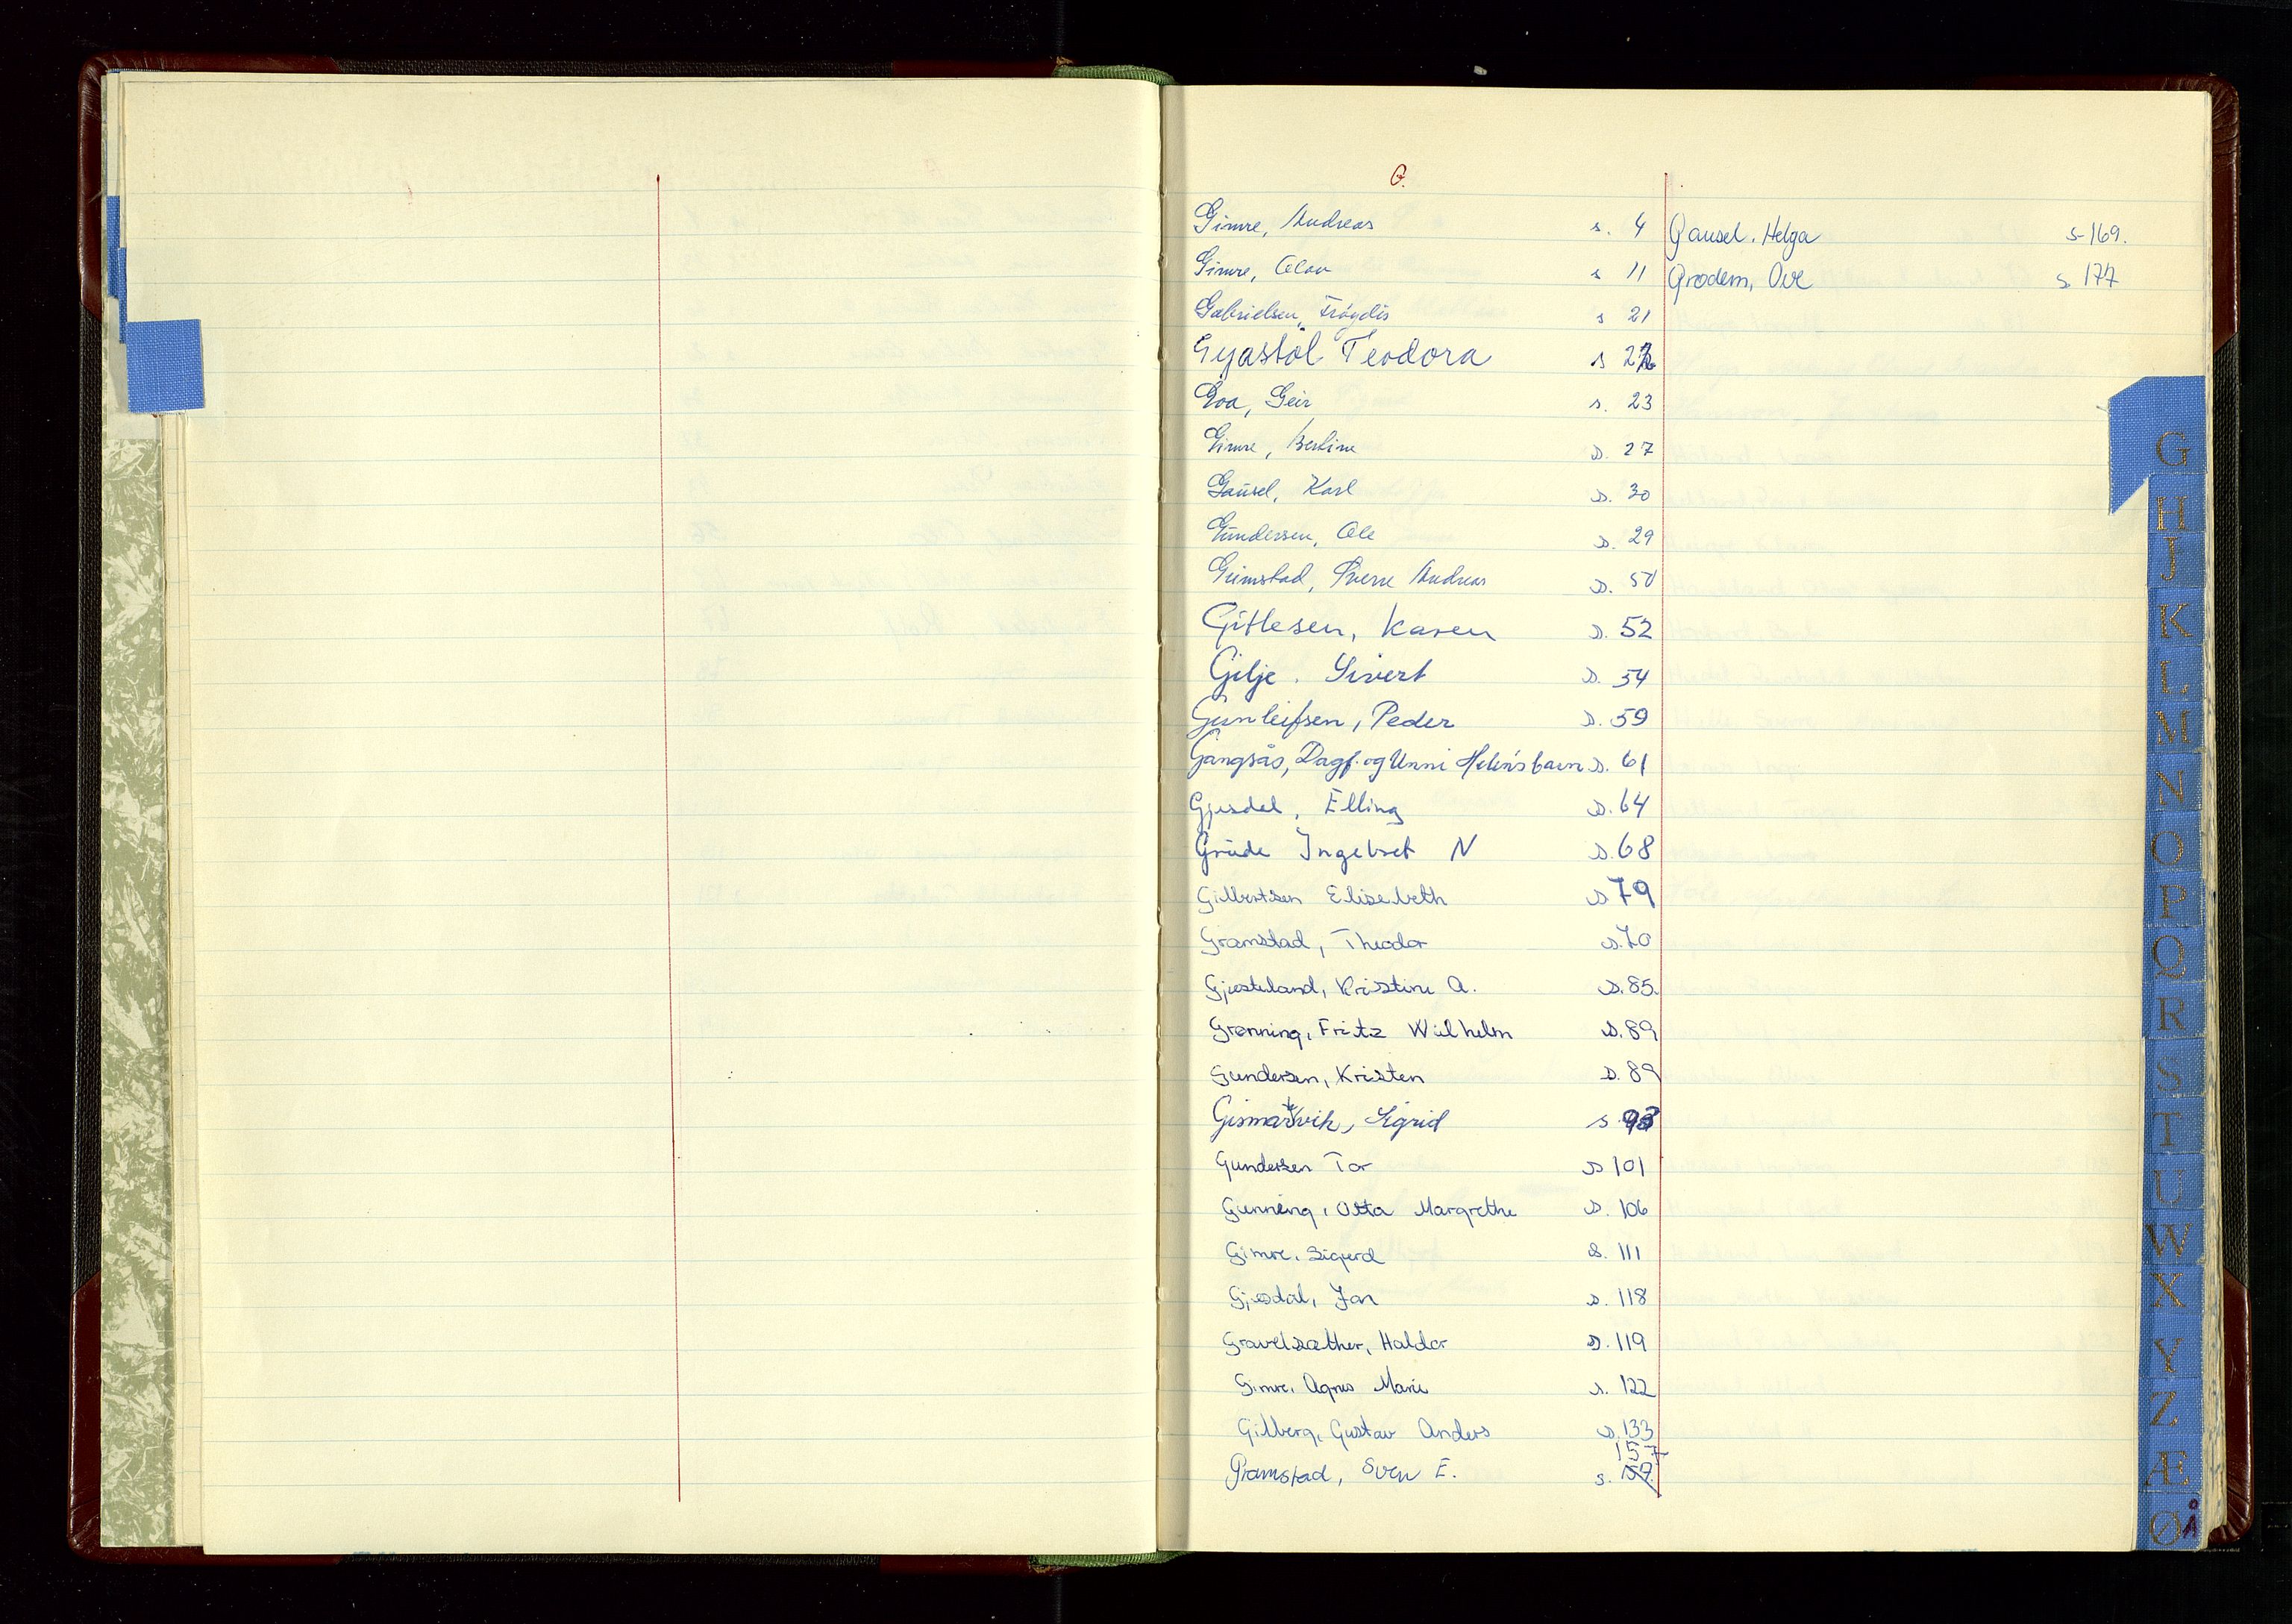 G.
Gimre, Andreas s. 4
Gimre, Olav s 11
Gabrielsen, Frøydis s 21
Gyastøl Teodora s 22
Goa, Geir s. 23
Gimre, Bertine s. 27
Gausel, Karl s. 30
Gundersen, Ole s. 29
Grimstad, Sverre Andreas s. 50
Gitlesen, Karen s. 52
Gilje. Sivert s. 54
Gunleifsen, Peder s. 59
Gangsås, Dagf. og Unni Helen's barn s. 61
Gjesdal, Elling s. 64
Grude Ingebret N s. 68
Gilbertsen Elisebeth s 79
Gramstad, Theodor s. 70
Gjesteland, Kristine A. s. 85.
Grønning, Fritz Wilhelm s. 89
Gundersen, Kristen s. 89
Gismarvik, Sigrid s 93
Gundersen Tor s 101
Gunning, Otta Margrethe s. 106
Gimre, Sigurd s. 111
Gjesdal, Jan s. 118
Gravelsæther, Haldor s. 119
Gimre, Agnes Marie s. 122
Gilberg, Gustav Anders s. 133
Gramstad, Sven E. s. 157
Gausel. Helga s-169.
Grødem, Ove s. 177
G
H
J
K
L
M
N
O
P
Q
R
S
T
U
W
X
Y
Z
Æ
Ø Å